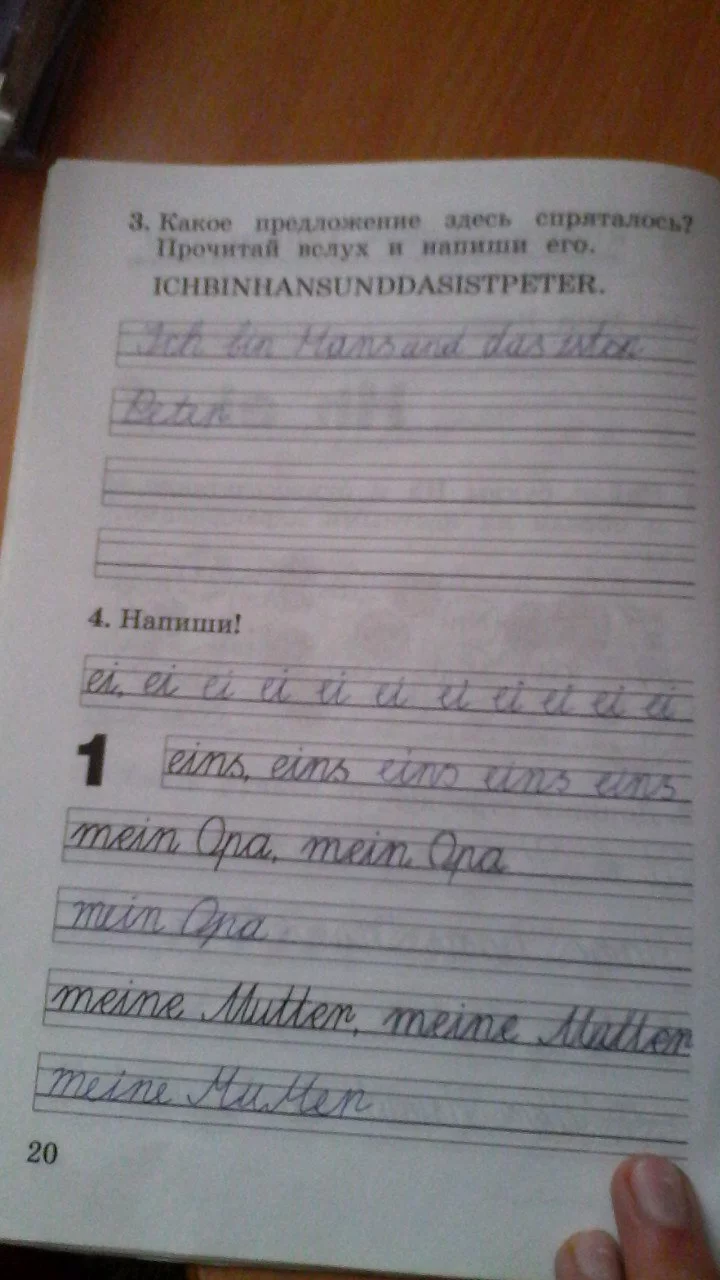 3. Какое предложение здесь спряталось?
Прочитай вслух и напиши его.
ICHBINHANSUNDDASISTPETER.
Ich bin Hans und das ist
Peter
4. Напиши!
ei, ei ei ei ei ei ei ei ei ei ei
1 eins, eins eins eins eins
mein Opa, mein Opa
mein Opa
meine Mutter, meine Mutter
meine Mutter
20